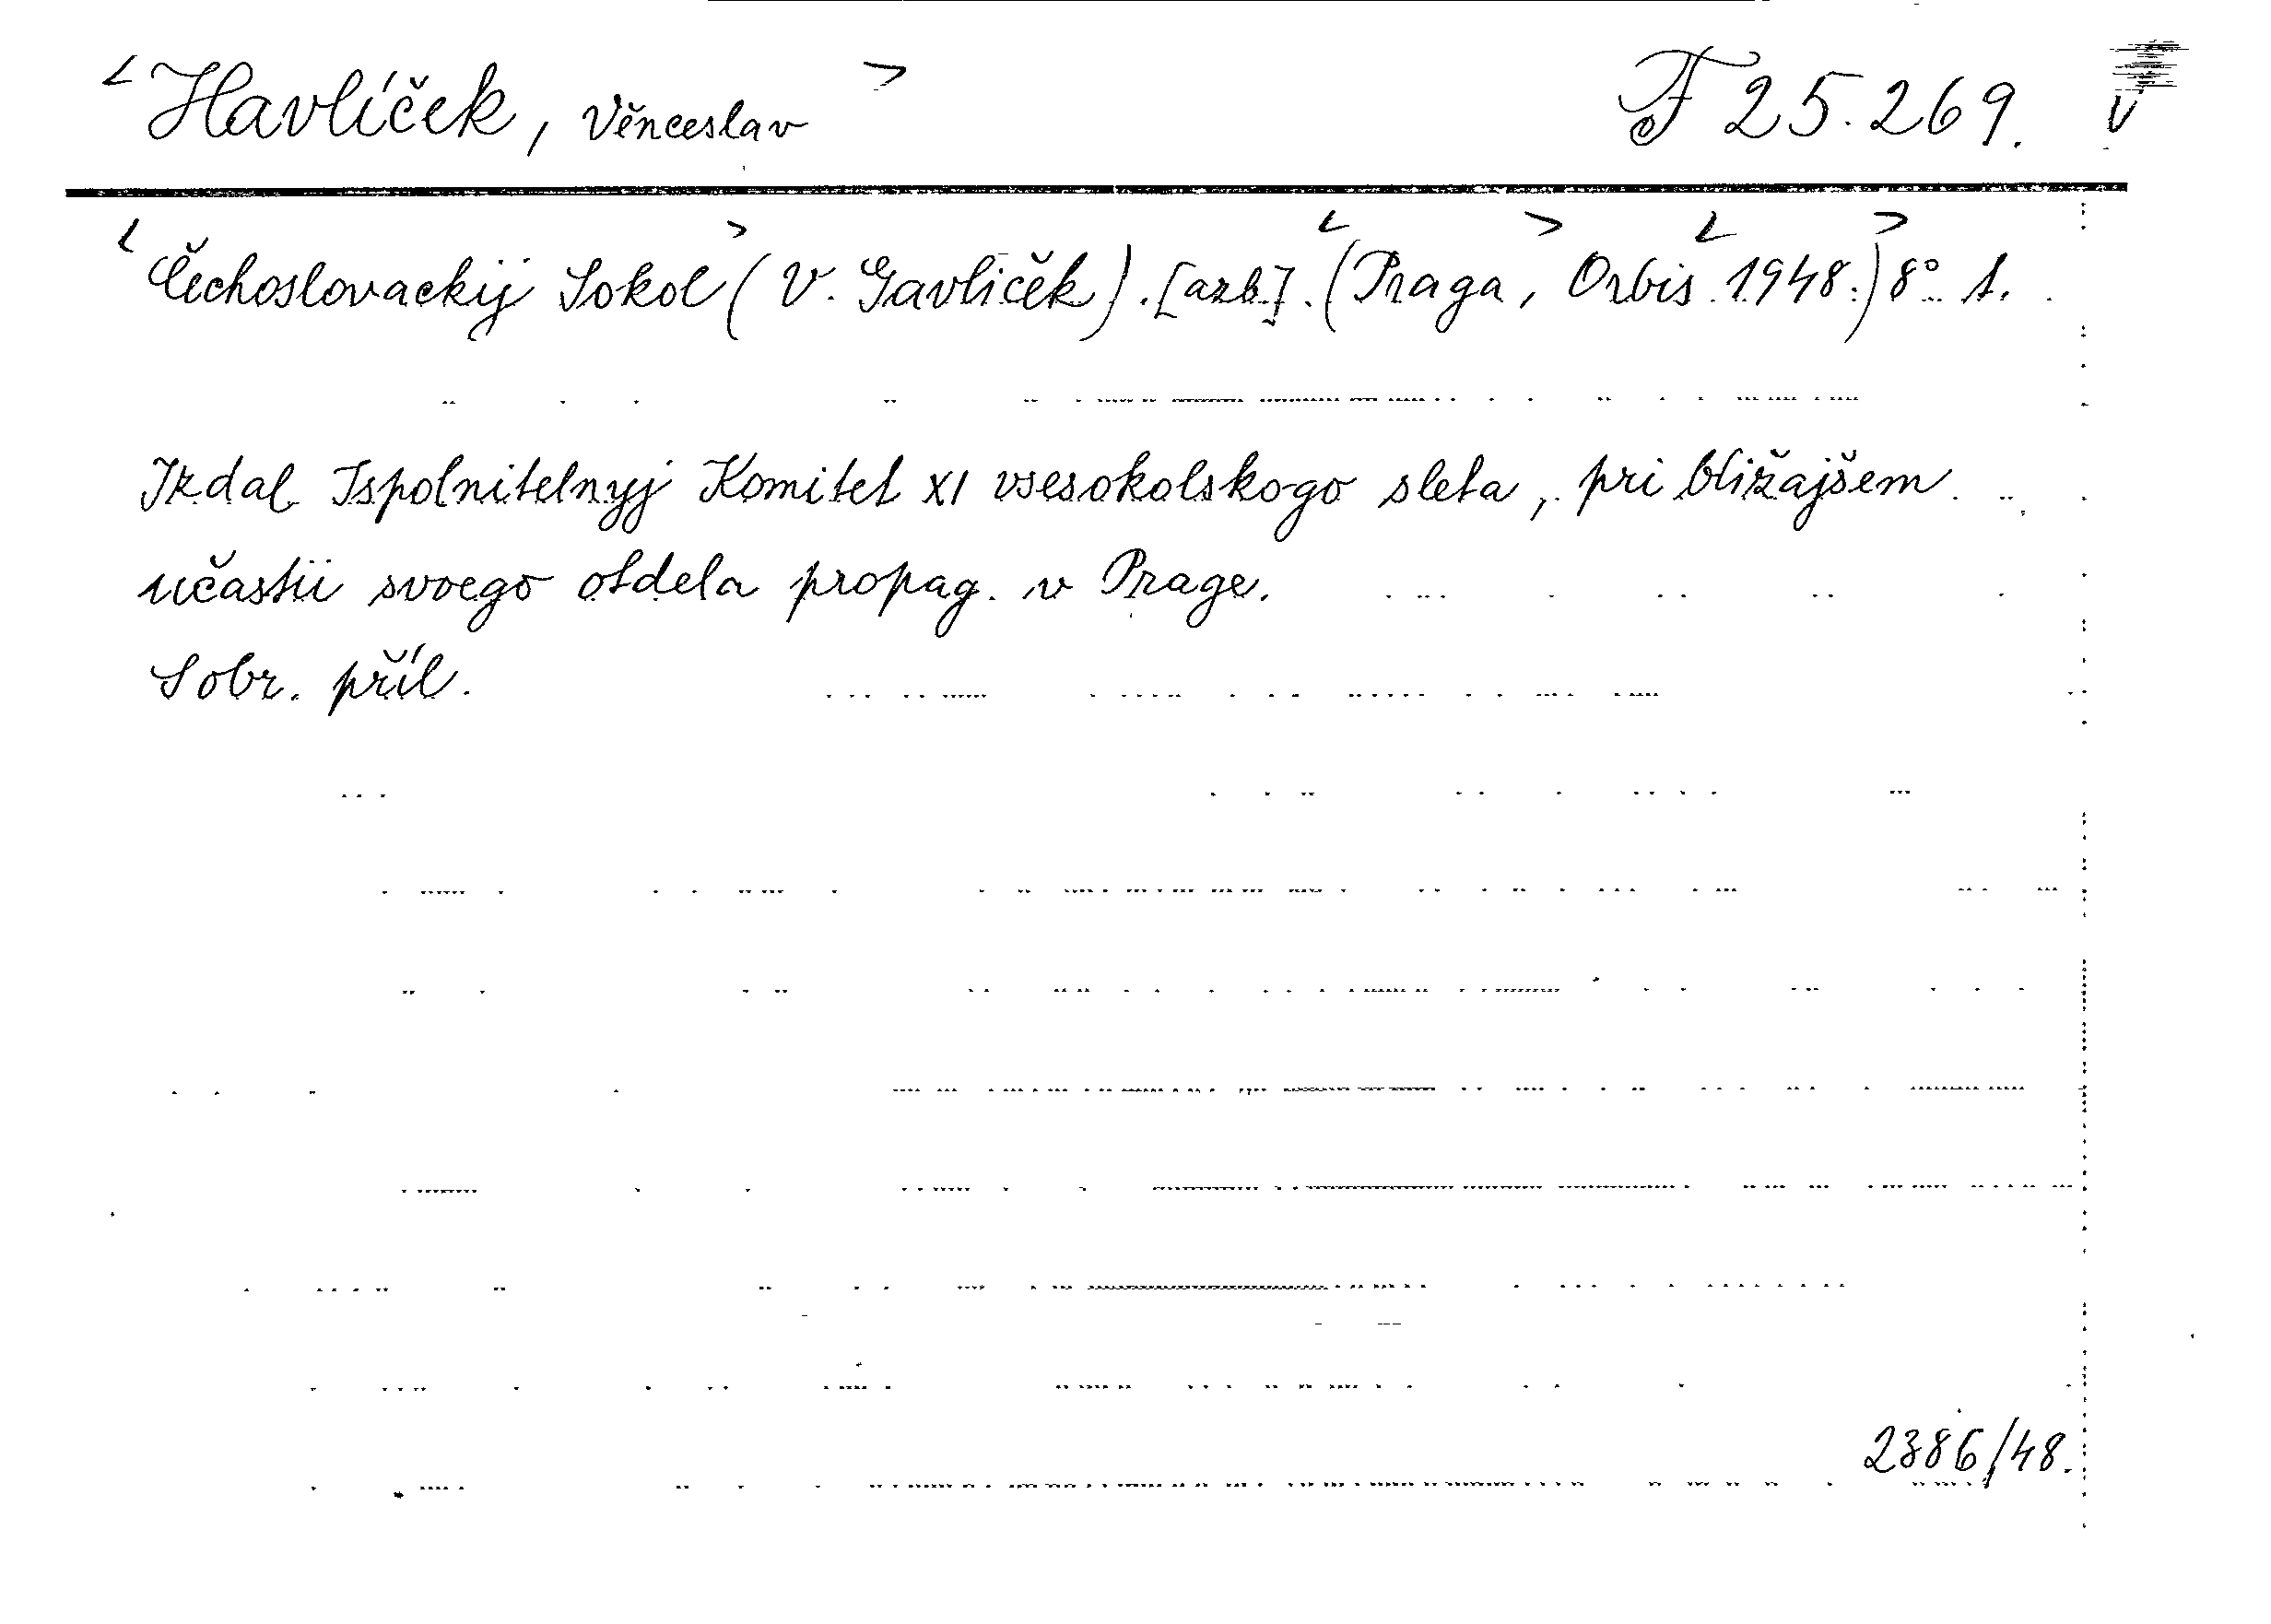 <Havlíček, Věnceslav> F 25.269. V
<Čechoslovackij Sokol> (V. Gavlíček). [azb.]. (<Praga, > Orbis <1948.>) 8° s.
Izdal Ispolnitelnyj Komitet XI vsesokolskogo sleta, pri bližajšem
učastii svoego otdela propag. v Prage.
S obr. příl.
2386/48.